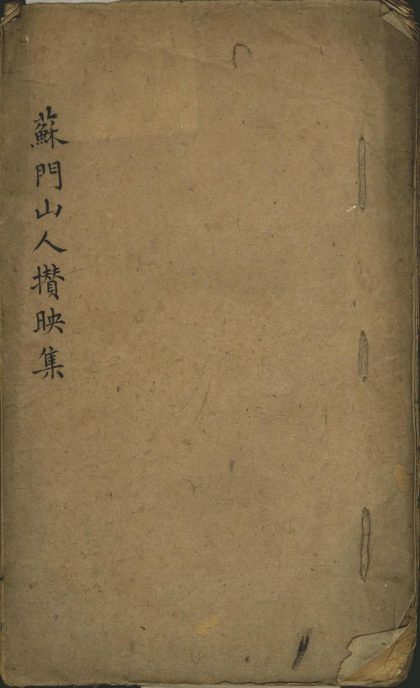 蘇門山人攅映集